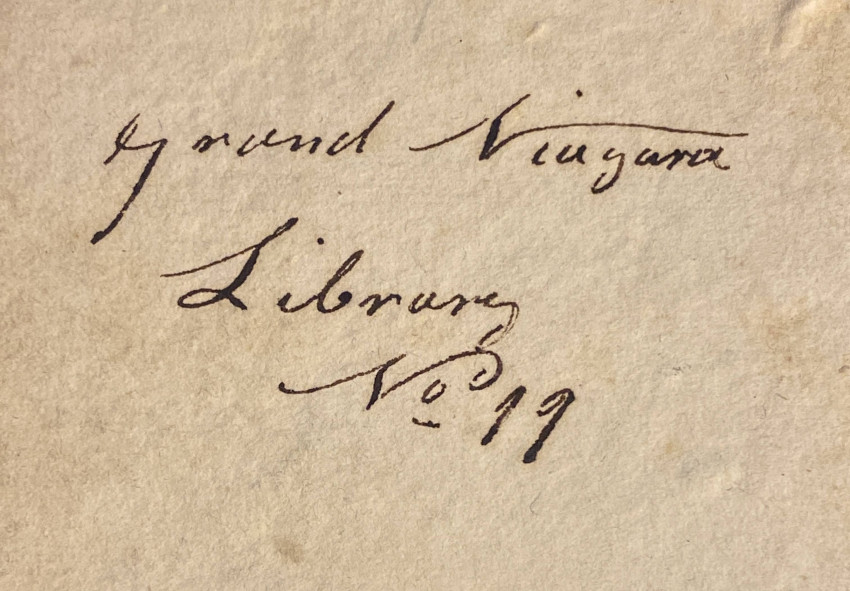 Grand Niagara
Library
No 19